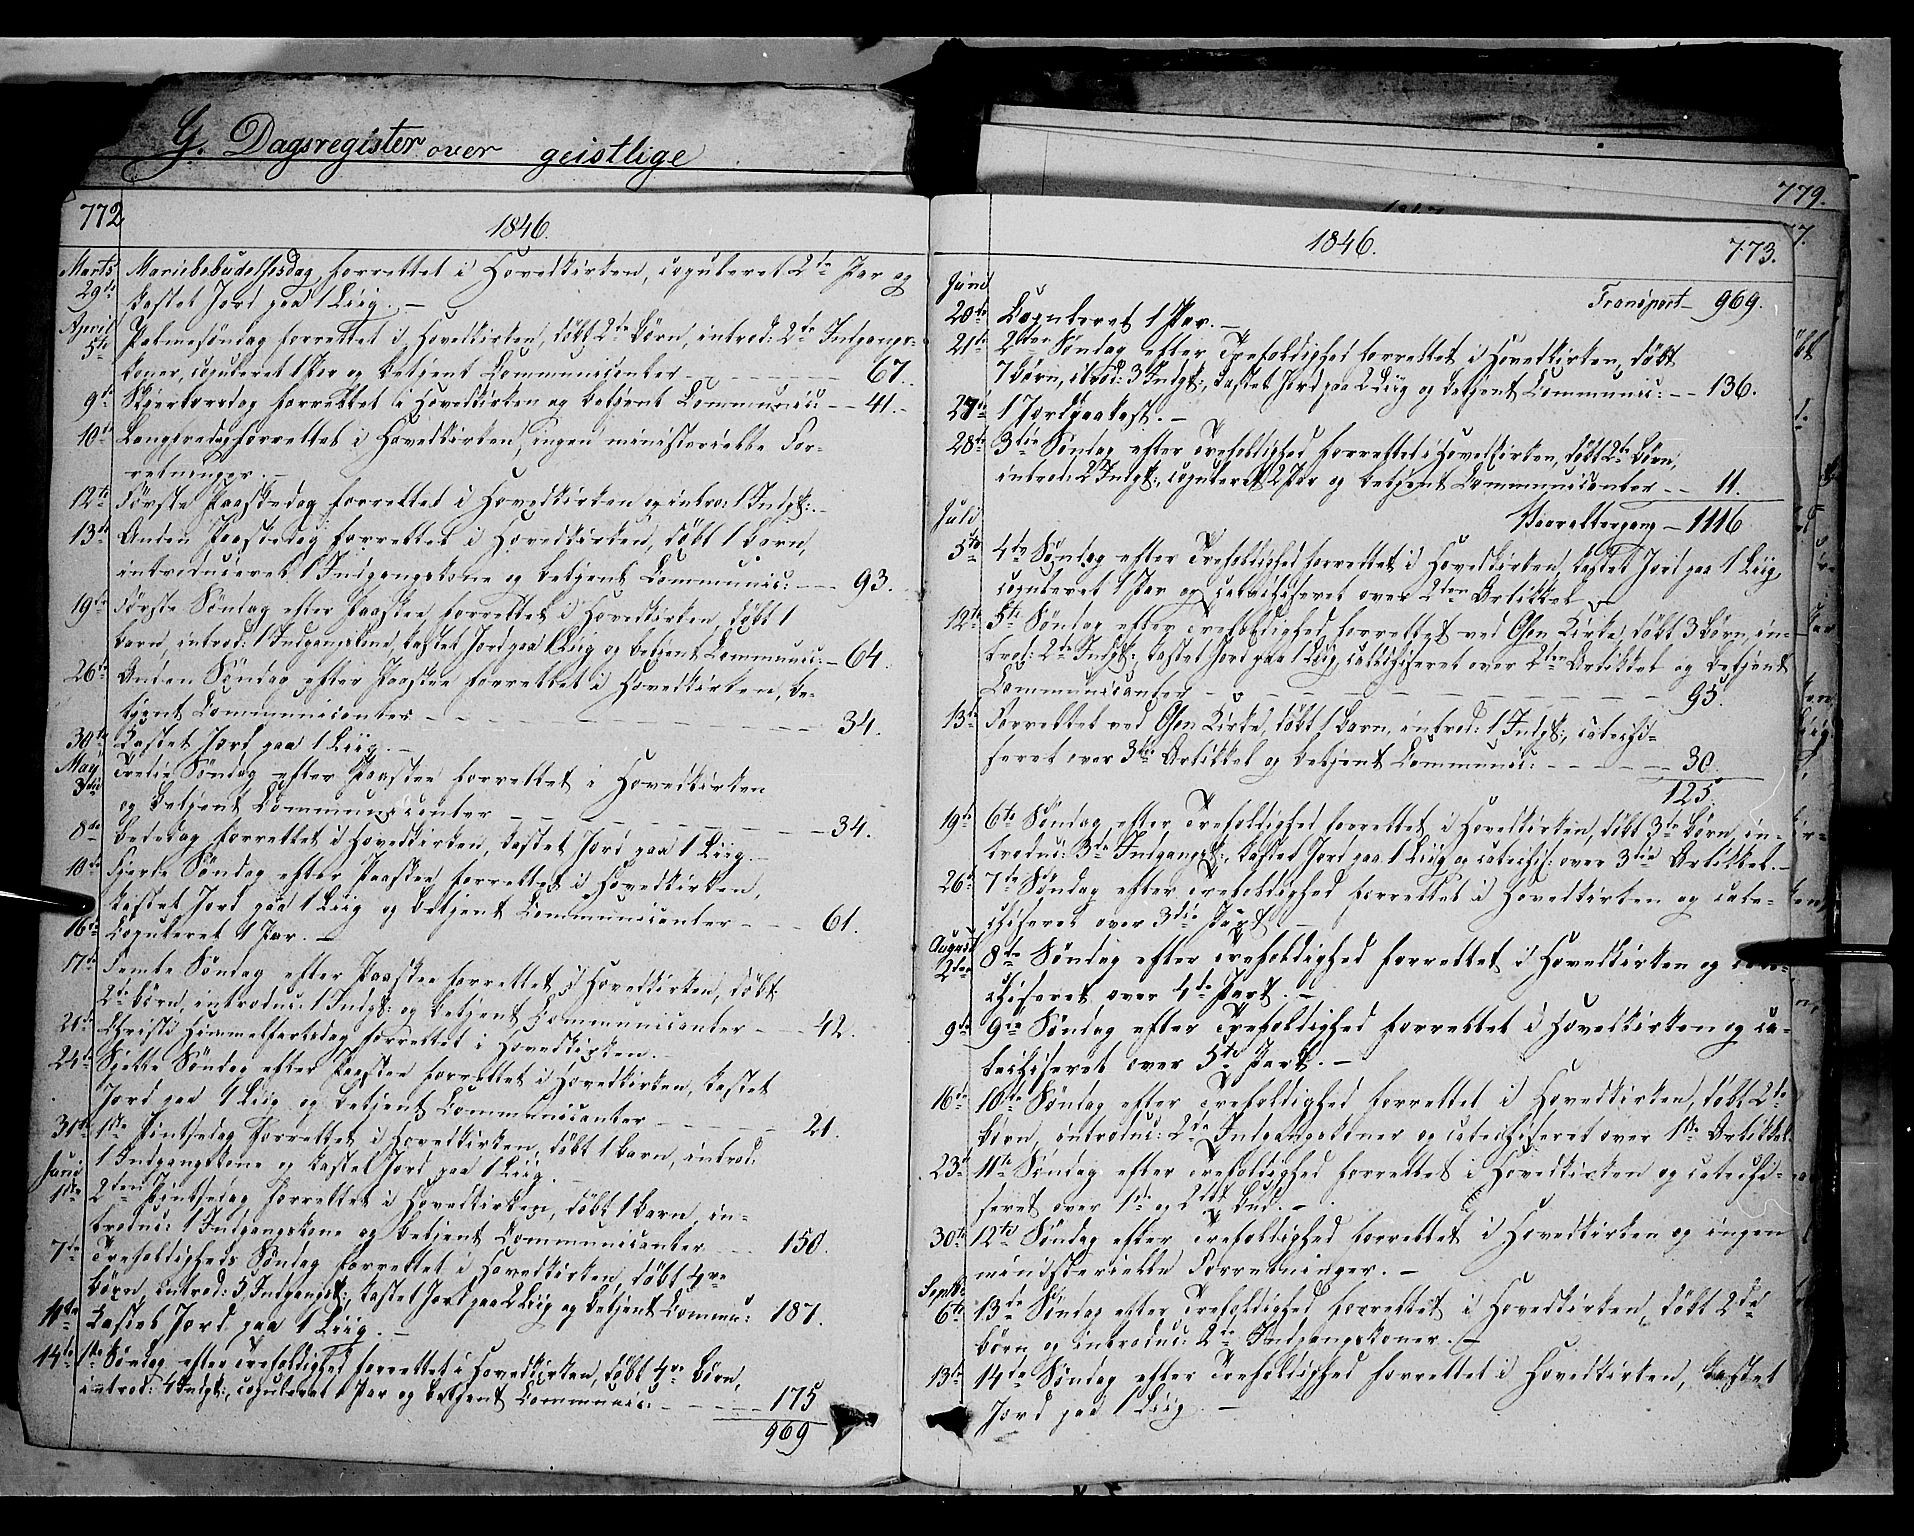 G. Dagsregister over geistlige
772
1846.
Marts Mariebebudelsesdag forrettet i Hovedkirken, copuleret 2de Par og
29de kastet Jord paa 1 Liig. —
April Palmesöndag forrettet i Hovedkirken, döbt 2de Börn, introd: 2de Indgangs-
5te koner, copuleret 1 Par og betjent Communicanter — 67.
9de Skjertorsdag forrettet i Hovedkirken og betjent Communic: — 41.
10de Langfredag forrettet i Hovedkirken, ingen ministerielle For-
retninger. —
12te Förste Paaskedag forrettet i Hovedkirken og introd: 1 Indgk: —
13de Anden Paaskedag forrettet i Hovedkirken, döbt 1 Barn,
introduceret 1 Indgangskone og betjent Communic: — 93.
19de Förste Söndag efter Paaske forrettet i Hovedkirken, döbt 1
Barn, introd: 1 Indgangskone, kastet Jord paa 1 Liig og betjent Communic: — 64.
26de Anden Söndag efter Paaske forrettet i Hovedkirken, be-
tjent Communicanter — 34.
30te Kastet Jord paa 1 Liig. —
May Tredie Söndag efter Paaske forrettet i Hovedkirken
3die og betjent Communicanter — 34.
8de Bededag forrettet i Hovedkirken, kastet Jord paa 1 Liig. —
10de Fjerde Söndag efter Paaske forrettet i Hovedkirken,
kastet Jord paa 1 Liig og betjent Communicanter — 61.
16de Copuleret 1 Par. —
17de Femte Söndag efter Paaske forrettet i Hovedkirken, döbt
2de Börn, introduc: 1 Indgk: og betjent Communicanter — 42.
21de Christi Himmelfartsdag forrettet i Hovedkirken. —
24de Sjette Söndag efter Paaske forrettet i Hovedkirken, kastet
Jord paa 1 Liig og betjent Communicanter — 21.
31te 1ste Pintsedag forrettet i Hovedkirken, döbt 1 Barn, introd:
1 Indgangskone og kastet Jord paa 1 Liig. —
Juni 2den Pintsedag forrettet i Hovedkirken, döbt 1 Barn, in-
1ste troduc: 1 Indgangskone og betjent Communicanter — 150.
7de Trefoldigheds Söndag forrettet i Hovedkirken, döbt 4re
Börn, introd: 5 Indgangsk:, kastet Jord paa 2 Liig og betjent Commu: 187.
11te Kastet Jord paa 1 Liig. —
14de 1ste Söndag efter Trefoldighed forrettet i Hovedkirken, döbt 4re Börn,
introd: 4 Indgk:, copuleret 1 Par og betjent Communic: — 175
969
779.
7.
1846.
773.
Juni
Transport — 969.
20de Copuleret 1 Par. —
21de 2den Söndag efter Trefoldighed forrettet i Hovedkirken, döbt
7 Börn, introd: 3 Indgk:, kastet Jord paa 2 Liig og betjent Communic: — 136.
27de 1 Jordpaakast. —
28de 3die Söndag efter Trefoldighed forrettet i Hovedkirken, döbt 2de Börn,
introd: 2 Indgk:, copuleret 2 Par og betjent Communicanter — 11.
Juli Vaaraltergang — 1116.
5te 4de Söndag efter Trefoldighed forrettet i Hovedkirken, kastet Jord paa 1 Liig,
copuleret 1 Par og catechiseret over 2den Artikkel. —
12te 5te Söndag efter Trefoldighed forrettet ved Glen Kirke, döbt 3 Börn, in-
trod: 2de Indgk:, kastet Jord paa 1 Liig, catechiseret over 2den Artikkel og betjent
Communicanter — 95.
13de Forrettet ved Glen Kirke, döbt 1 Barn, introd: 1 Indgk:, catechi-
seret over 3die Artikkel og betjent Communic: — 30.
125.
19de 6te Söndag efter Trefoldighed forrettet i Hovedkirken, döbt 3de Börn, in-
troduc: 3de Indgangsk:, kastet Jord paa 1 Liig og catechis: over 3die Artikkel. —
26de 7de Söndag efter Trefoldighed forrettet i Hovedkirken og cate-
chiseret over 3die Part. —
August 8de Söndag efter Trefoldighed forrettet i Hovedkirken og cate-
2den chiseret over 4de Part. —
9de 9de Söndag efter Trefoldighed forrettet i Hovedkirken og ca-
techiseret over 5te Part. —
16de 10de Söndag efter Trefoldighed forrettet i Hovedkirken, döbt 2de
Börn, introduc: 2de Indgangskoner og catechiseret over 1ste Artikkel.
23de 11te Söndag efter Trefoldighed forrettet i Hovedkirken og catechi-
seret over 1ste og 2det Bud. —
30te 12te Söndag efter Trefoldighed forrettet i Hovedkirken og ingen
ministerielle Forretninger. —
Septbr 13de Söndag efter Trefoldighed forrettet i Hovedkirken, döbt 2de
6te Börn og introduc: 2de Indgangskoner. —
13de 14de Söndag efter Trefoldighed forrettet i Hovedkirken, kastet
Jord paa 1 Liig. —